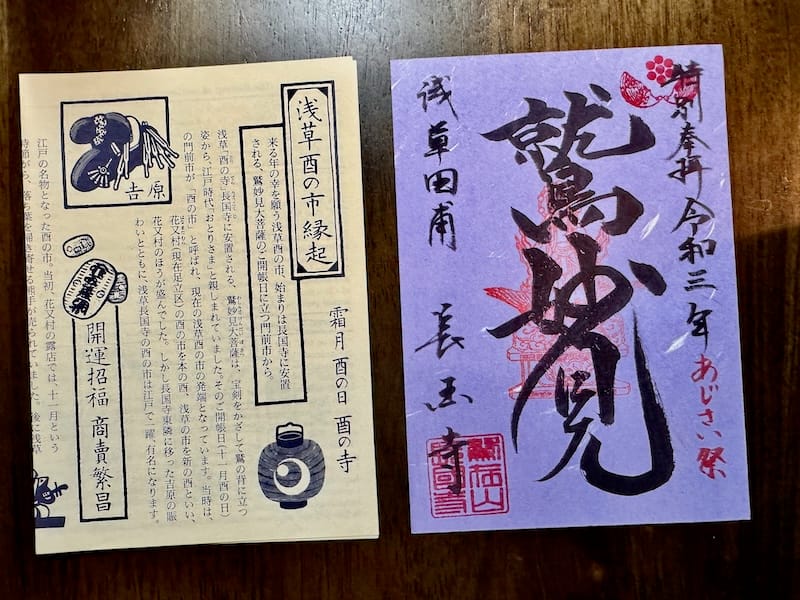 霜月 酉の日 酉の寺
浅草酉の市縁起
来る年の幸を願う浅草酉の市、始まりは長国寺に安置
される、鷲妙見大菩薩のご開帳日に立つ門前市から。
浅草「酉の寺」長国寺に安置される、鷲妙見大菩薩は、宝剣をかざして鷲の背に立つ
姿から、江戸時代、おとりさまと親しまれていました。そのご開帳日(十一月酉の日)
の門前市が「酉の市」と呼ばれ、現在の浅草酉の市の発端となっています。当時は、
花又村(現在足立区)の酉の市を本の酉、浅草の市を新の酉といい、
花又村のほうが盛んでした。しかし長国寺東隣に移った吉原の賑
わいとともに、浅草長国寺の酉の市は江戸で一躍有名になります。
吉原
開運招福 商賣繁昌
江戸の名物となった酉の市。当初、花又村の露店では、十一月という
時節がら、落ち葉を掃き寄せる熊手が売られていました。後に浅草
特別奉拝 令和三年 あじさい祭
鷲妙見
浅草田甫 長国寺
鷲在山
長国寺